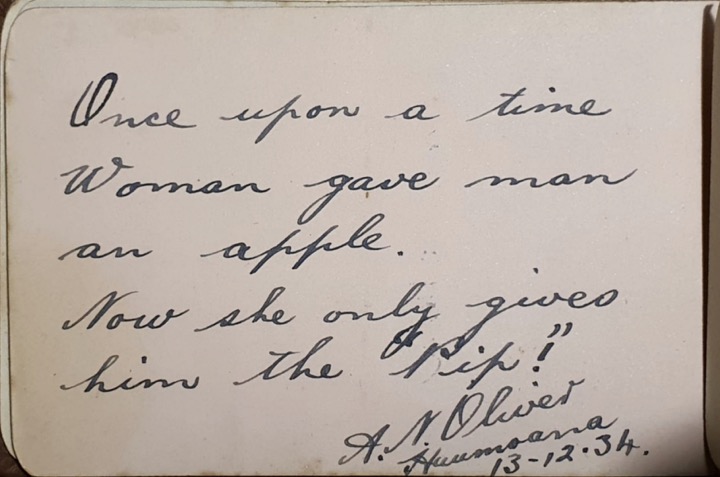 Once upon a time
Woman gave man
an apple.
Now she only gives
him the "Pip!"
A. N. Oliver
Haumoana
13-12-34.